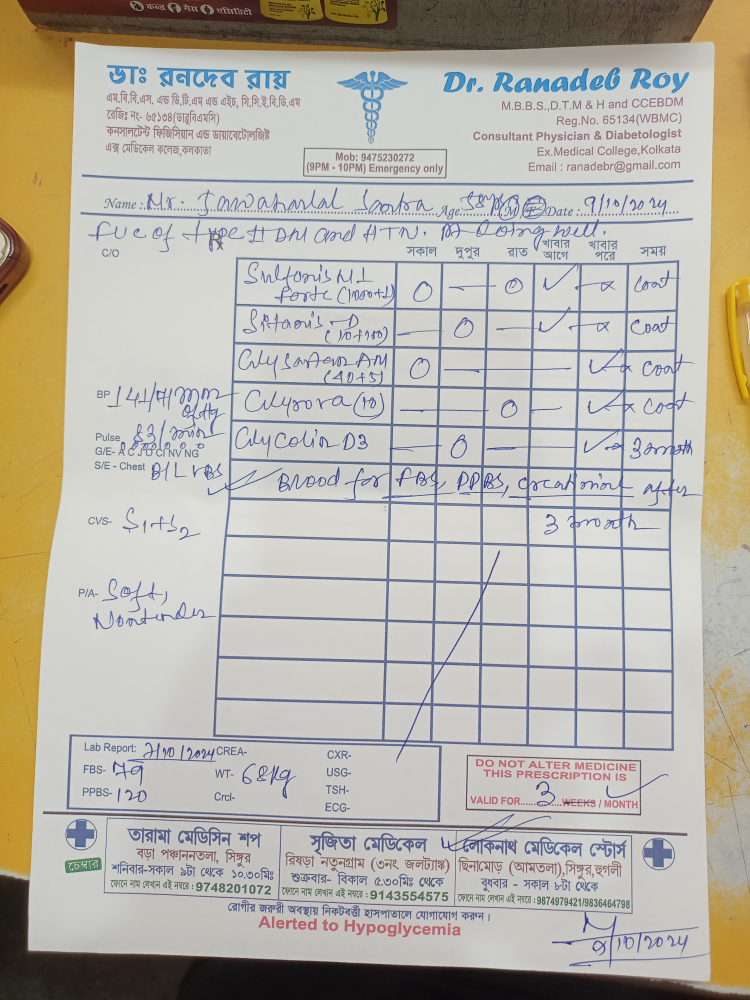 কব্জ গেস एसिडिटी
ডাঃ রনদেব রায়
এম.বি.বি.এস. এন্ড ডি.টি.এম এন্ড এইচ, সি.সি.ই.বি.ডি.এম
রেজিঃ নং- ৬৫১৩৪(ডাব্লুবিএমসি)
কনসালটেন্ট ফিজিসিয়ান এন্ড ডায়াবেটোলজিষ্ট
এক্স মেডিকেল কলেজ, কলকাতা
Mob: 9475230272
(9PM - 10PM) Emergency only)
Dr. Ranadeb Roy
M.B.B.S.,D.T.M & H and CCEBDM
Reg.No. 65134(WBMC)
Consultant Physician & Diabetologist
Ex.Medical College,Kolkata
Email : ranadebr@gmail.com
Name : Mr. Jawaharlal Santra Age 58y M F Date : 9/10/2024
FUC of type II DM and HTN. Pt doing well.
C/O সকাল দুপুর রাত খাবার আগে খাবার পরে সময়
Sulfonis M1 forte (1000+1) 0 — 0 ✓ — x cont
Sitanis D (10+100) — 0 — ✓ — x cont
Glysartan AM (40+5) 0 — — — ✓ x cont
BP 141/
Glyrova (10) — — 0 — ✓ x cont
Pulse 83/min
G/E- A C J O CI NV NG
Glycolin D3 — 0 — — ✓ 3 month
S/E - Chest B/L VBS
✓ Blood for FBS, PPBS, creatinine after
3 month
CVS- S1+S2
P/A- Soft,
Nontender
Lab Report: 7/10/2024 CREA- CXR-
FBS- 79 WT- 68kg USG-
PPBS- 120 Crcl- TSH-
ECG-
DO NOT ALTER MEDICINE
THIS PRESCRIPTION IS
VALID FOR 3 WEEKS / MONTH
চেম্বার
তারামা মেডিসিন শপ
বড়া পঞ্চাননতলা, সিঙ্গুর
শনিবার-সকাল ৯টা থেকে ১০.৩০মিঃ
ফোনে নাম লেখান এই নম্বরে : 9748201072
সৃজিতা মেডিকেল
রিষড়া নতুনগ্রাম (৩নং জলট্যাঙ্ক)
শুক্রবার- বিকাল ৫.৩০মিঃ থেকে
ফোনে নাম লেখান এই নম্বরে : 9143554575
লোকনাথ মেডিকেল স্টোর্স
ছিনামোড় (আমতলা),সিঙ্গুর,হুগলী
বুধবার - সকাল ৮টা থেকে
ফোনে নাম লেখান এই নম্বরে : 9874979421/9836464798
রোগীর জরুরী অবস্থায় নিকটবর্তী হাসপাতালে যোগাযোগ করুন।
Alerted to Hypoglycemia
9/10/2024